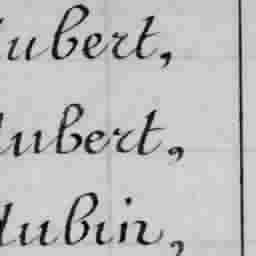 ubert,
ubert,
ubin,